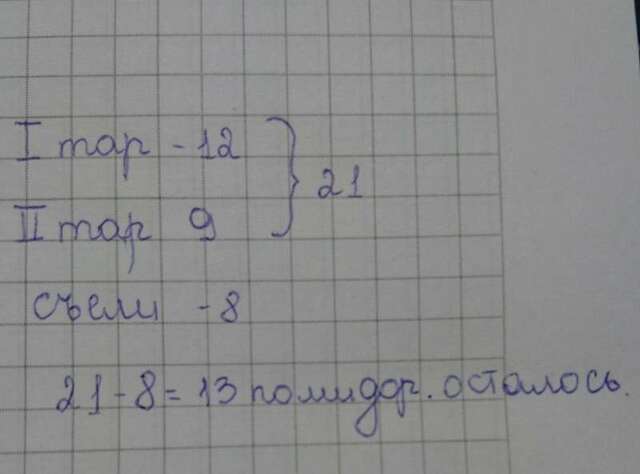 I тар - 12
} 21
II тар 9
съели - 8
21 - 8 = 13 помидор. осталось.